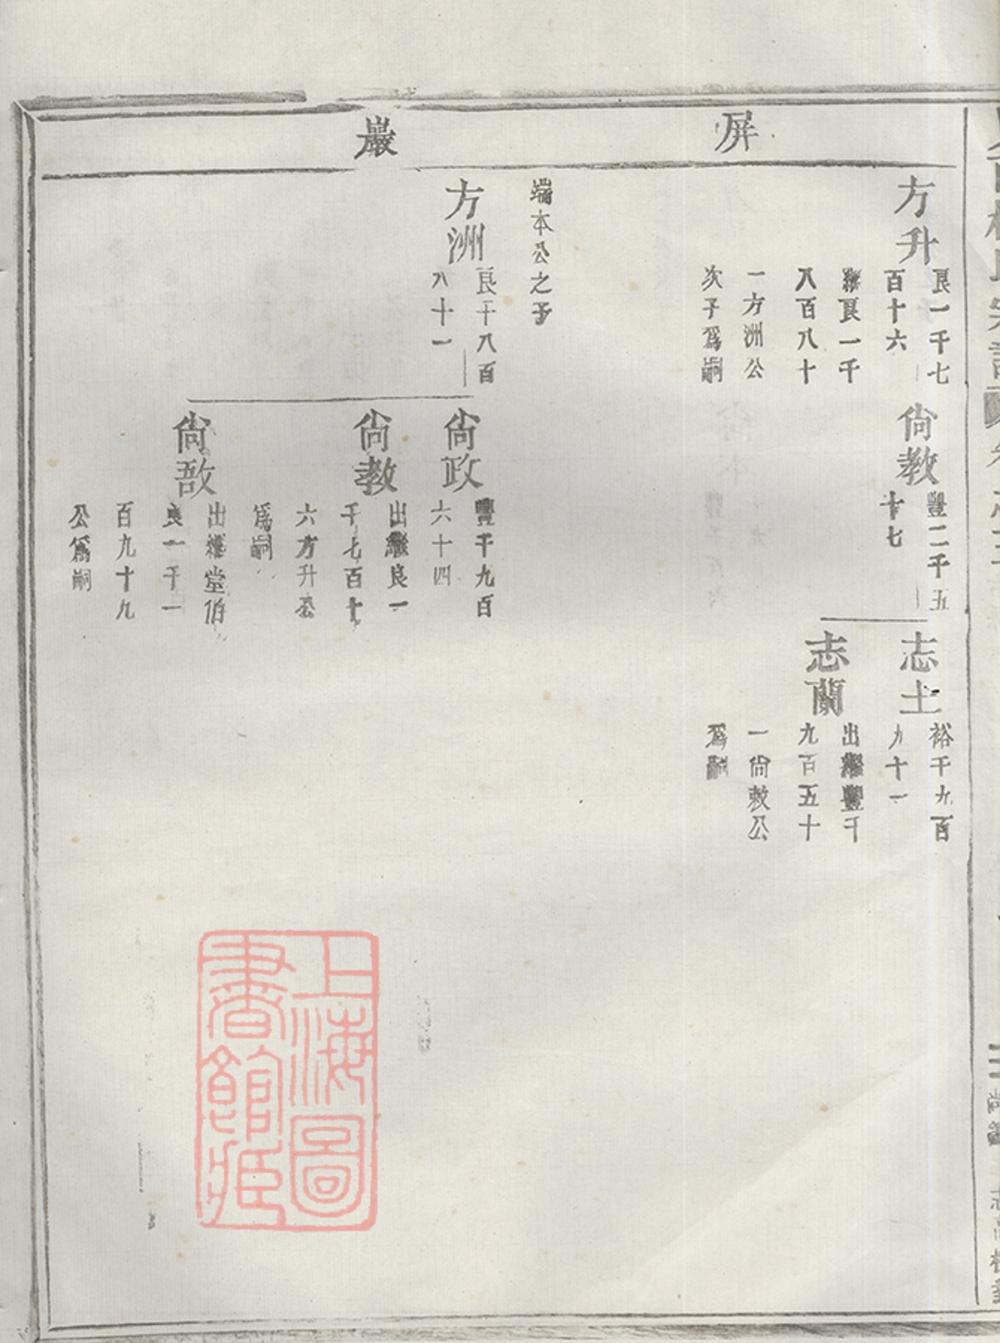 屏
巖
方升
良一千七
百十六
繼良一千
八百八十
一方洲公
次子爲嗣
尙教
豐二千五
十七
志士
裕千九百
九十一
志蘭
出繼豐千
九百五十
一尙敎公
爲嗣
端本公之子
方洲
良千八百
八十一
尙政
豐千九百
六十四
尙教
出繼良一
千七百十
六方升公
爲嗣
尙敔
出繼堂伯
良一千一
百九十九
公爲嗣
上海圖
書館藏